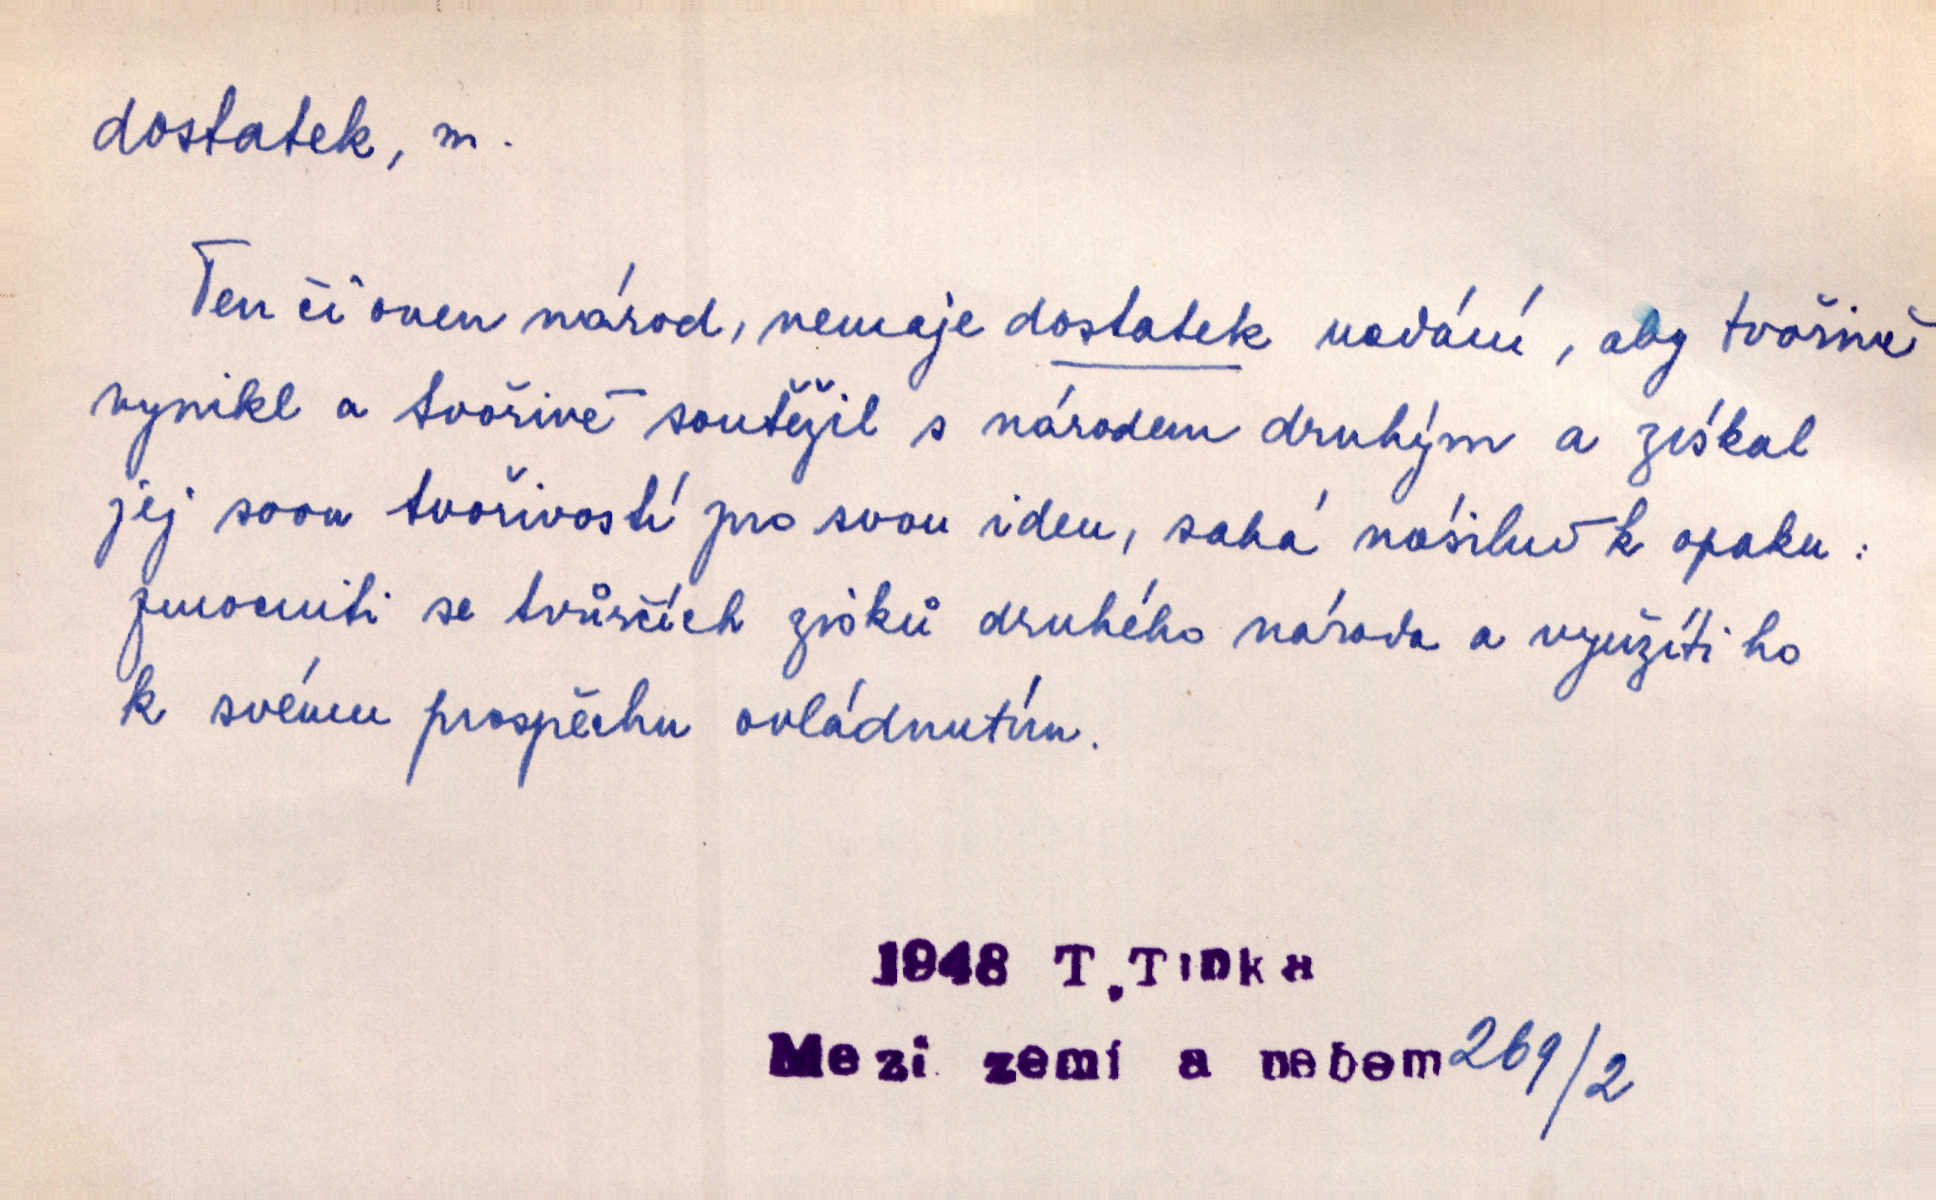 dostatek, m.
Ten či onen národ, nemaje dostatek nadání, aby tvořivě
vynikl a tvořivě soutěžil s národem druhým a získal
jej svou tvořivostí pro svou ideu, sahá násilně k opaku:
zmocniti se tvůrčích zisků druhého národa a využíti ho
k svému prospěchu ovládnutím.
1948 T. Tinka
Mezi zemí a nebem 269/2